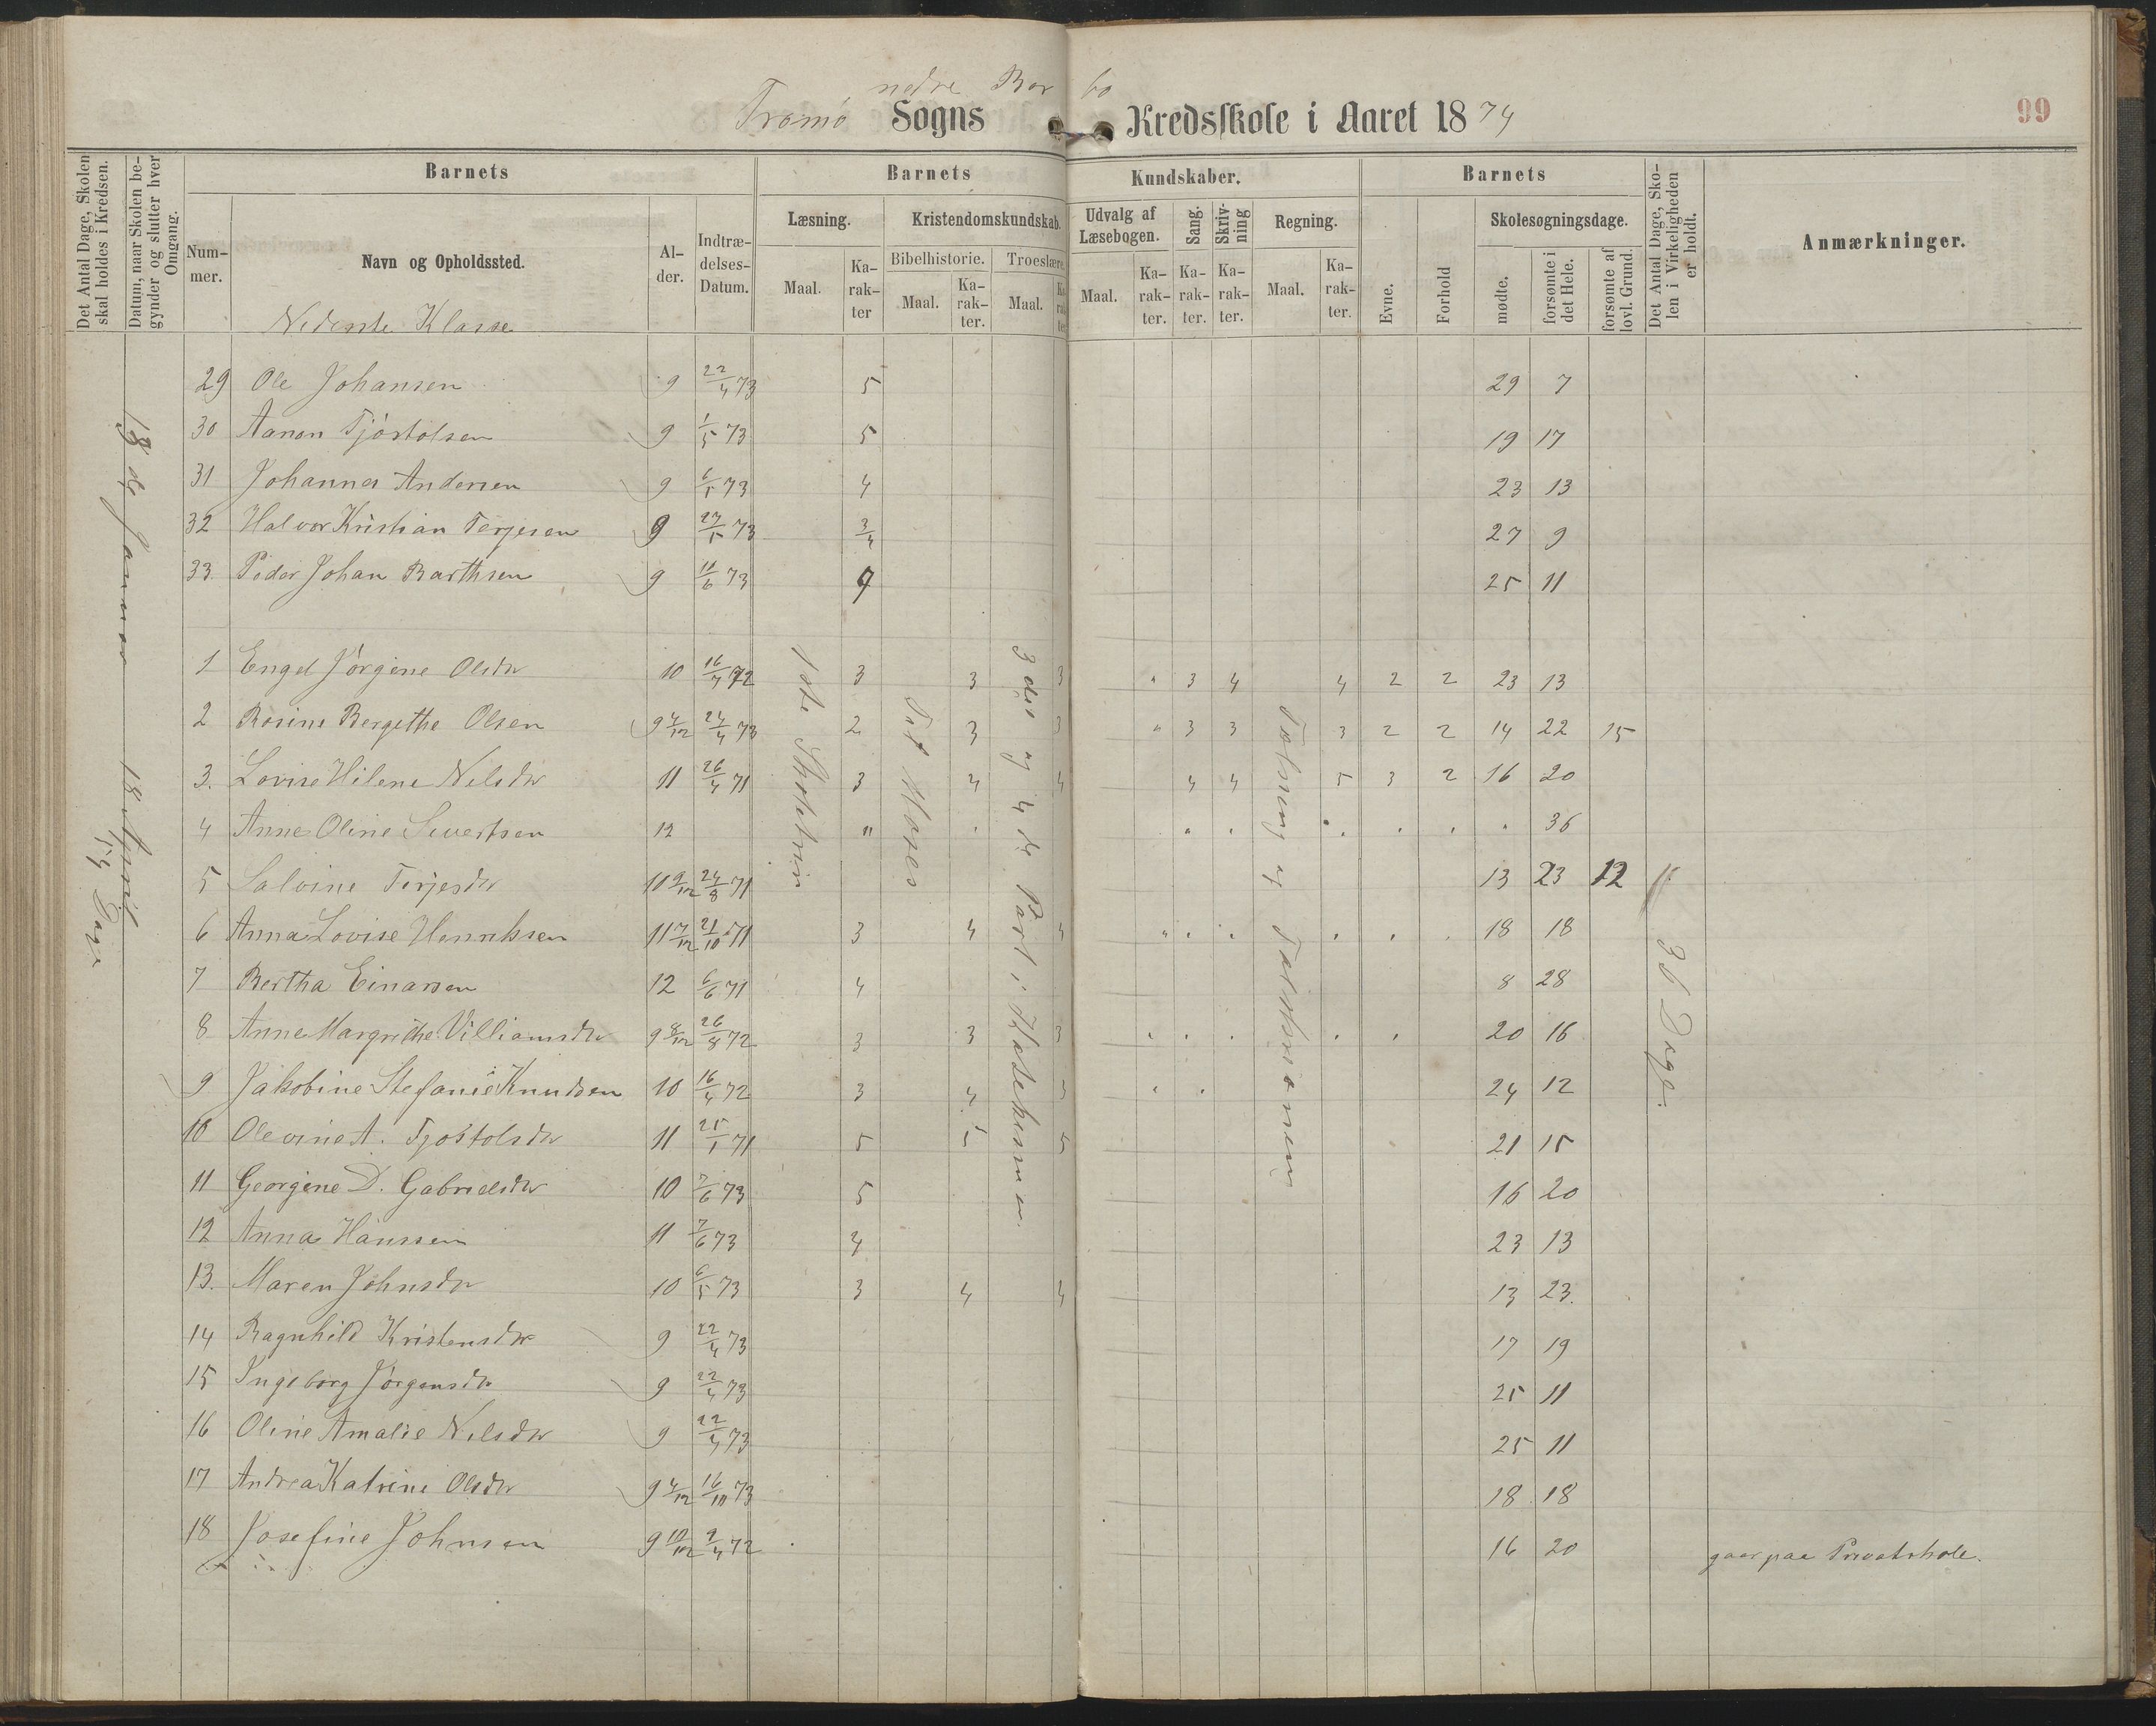 nedre Bar bo
Tromø Sogns Kredsskole i Aaret 1874
99
Det Antal Dage, Skolen skal holdes i Kredsen.
Datum, naar Skolen begynder og slutter hver Omgang.
Barnets
Barnets Kundskaber.
Barnets
Nummer.
Navn og Opholdssted.
Alder.
Indtrædelses-Datum.
Læsning.
Kristendomskundskab.
Udvalg af Læsebogen.
Sang.
Skrivning
Regning.
Skolesøgningsdage.
Det Antal Dage, Skolen i Virkeligheden er holdt.
Anmærkninger.
Bibelhistorie.
Troeslære.
Maal.
Karakter
Maal.
Karakter.
Maal.
Karakter.
Maal.
Karakter.
Karakter.
Karakter.
Maal.
Karakter.
Evne.
Forhold
mødte.
forsømte i det Hele.
forsømte af lovl. Grund.
Nederste Klasse
29 Ole Johansen 9 22/4 73 5 29 7
30 Aanon Tjøstolsen 9 1/5 73 5 19 17
31 Johannes Andersen 9 6/5 73 4 23 13
32 Halvor Kristian Terjesen 9 27/5 73 3/4 27 9
33. Peder Johan Barthsen 9 11/6 73 4 25 11
1 Engel Jørgine Olsdtr 10 16/4 72 3 3 3 " 3 4 4 2 2 23 13
2 Rosine Bergethe Olsen 9 4/12 24/4 73 2 3 3 " 3 3 3 2 2 14 22 15
3. Lovise Helene Nelsdtr 11 26/4 71 3 4 4 4 4 5 3 2 16 20
4 Anne Oline Sivertsen 12 " . . . . . . . 36
5 Salvine Terjesdtr 10 9/12 24/8 71 13 23 12
6 Anna Lovise Henriksen 11 7/12 21/10 71 3 4 4 " . . . . . 18 18
7 Bertha Einarsen 12 6/6 71 4 8 28
8 Anne Margrethe Villiamsdtr 9 8/12 26/8 72 3 3 3 . . . . . 20 16
9 Jakobine Stefanie Knudsen 10 16/4 72 3 4 3 . . 24 12
10 Olevine A. Tjøstolsdtr 11 25/1 71 5 5 5 21 15
11 Georgine D. Gabrielsdtr 10 7/6 73 5 16 20
12 Anna Hanssen 11 7/6 73 4 23 13
13. Maren Johnsdtr 10 6/5 73 3 4 4 13 23.
14 Ragnhild Kristensdtr 9 22/4 73 17 19
15 Ingeborg Jørgensdtr 9 22/4 73 25 11
16 Oline Amalie Nelsdtr 9 22/4 73 25 11
17 Andrea Katrine Olsdtr 9 4/12 16/10 73 18 18
18 Josefine Johnsen 9 10/12 9/4 72 16 20 gaar paa Privatskole.
13 de Januar 18 April
54 Dage
1ste Skoletrin
Til Moses
3die og 4de Part i Katekismen
Tælning og
36 Dage.